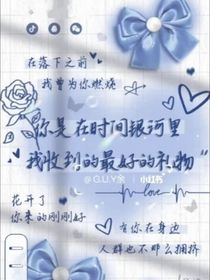 在落下之前
我曾为你燃烧
"你是在时间银河里
我收到的最好的礼物"
@G.U.Y余
小红书
love
花开了
你来的刚刚好
有你在身边
人群也不那么拥挤